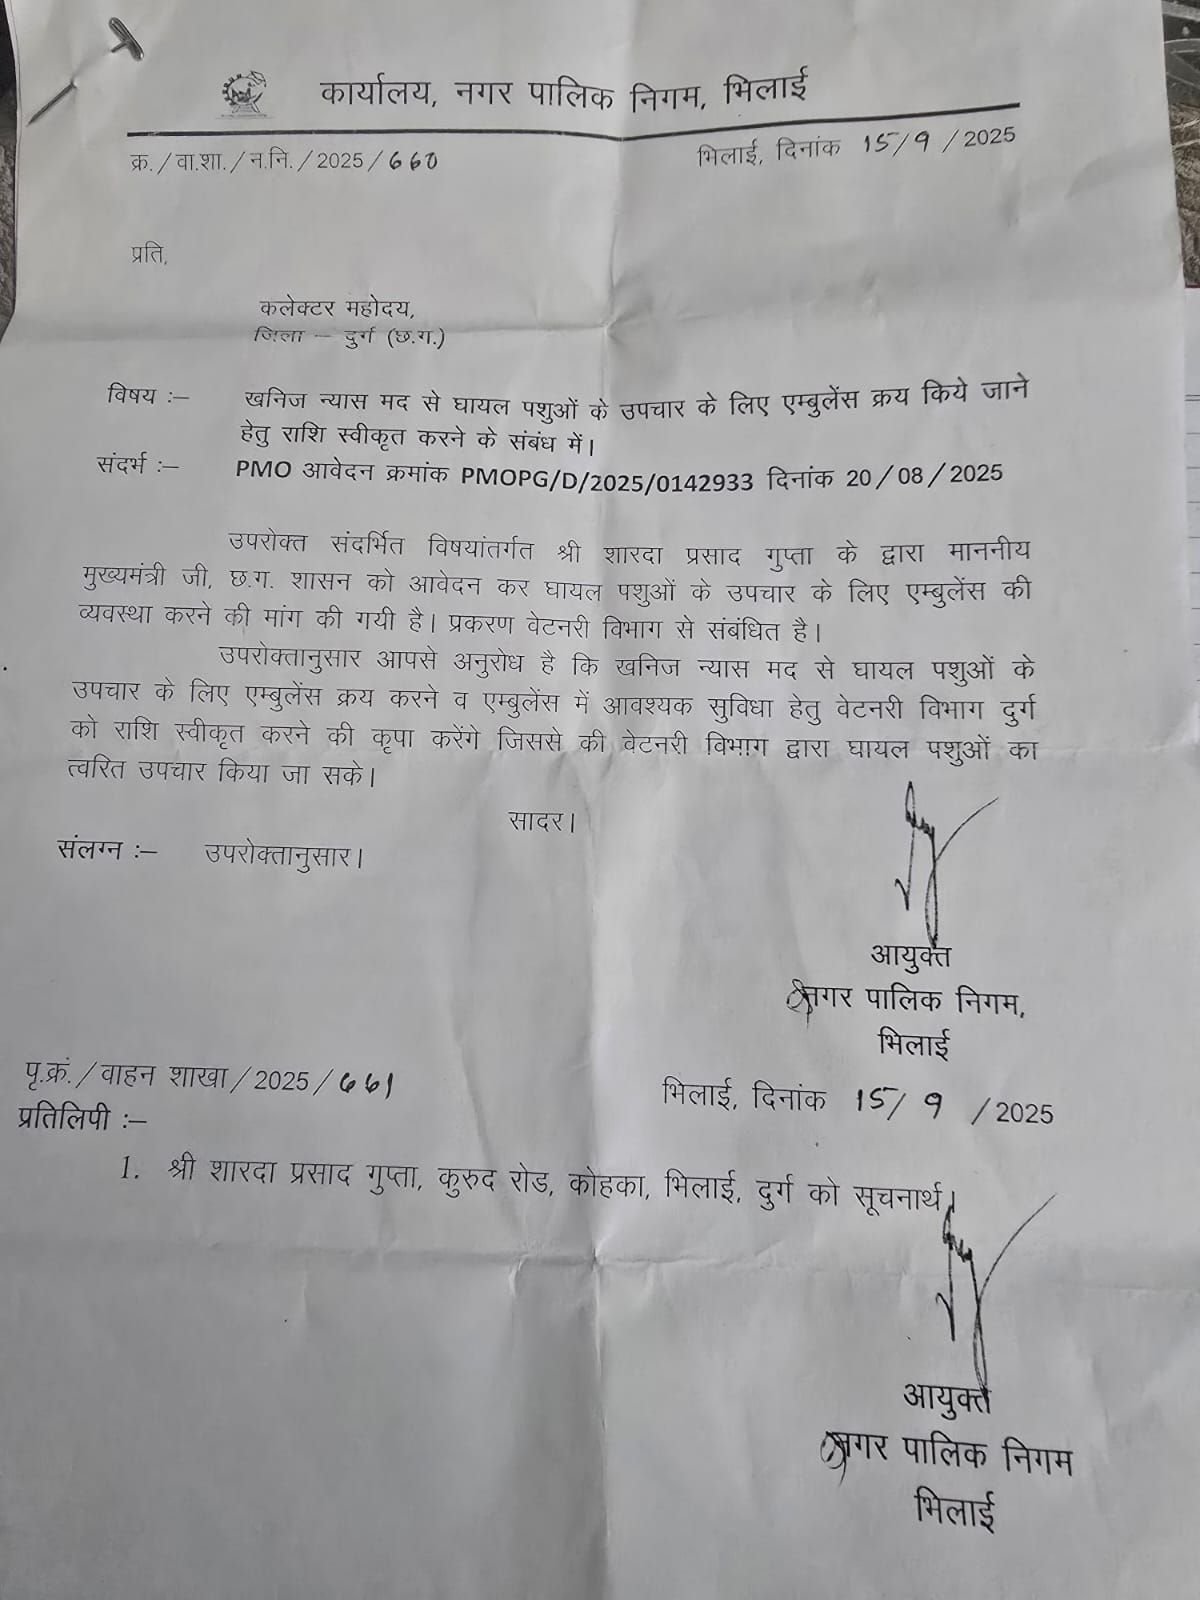 कार्यालय, नगर पालिक निगम, भिलाई
क्र./वा.शा./न.नि./2025/660
भिलाई, दिनांक 15/9/2025
प्रति,
कलेक्टर महोदय,
जिला – दुर्ग (छ.ग.)
विषय :– खनिज न्यास मद से घायल पशुओं के उपचार के लिए एम्बुलेंस क्रय किये जाने
हेतु राशि स्वीकृत करने के संबंध में।
संदर्भ :– PMO आवेदन क्रमांक PMOPG/D/2025/0142933 दिनांक 20/08/2025
उपरोक्त संदर्भित विषयांतर्गत श्री शारदा प्रसाद गुप्ता के द्वारा माननीय
मुख्यमंत्री जी, छ.ग. शासन को आवेदन कर घायल पशुओं के उपचार के लिए एम्बुलेंस की
व्यवस्था करने की मांग की गयी है। प्रकरण वेटनरी विभाग से संबंधित है।
उपरोक्तानुसार आपसे अनुरोध है कि खनिज न्यास मद से घायल पशुओं के
उपचार के लिए एम्बुलेंस क्रय करने व एम्बुलेंस में आवश्यक सुविधा हेतु वेटनरी विभाग दुर्ग
को राशि स्वीकृत करने की कृपा करेंगे जिससे की वेटनरी विभाग द्वारा घायल पशुओं का
त्वरित उपचार किया जा सके।
सादर।
संलग्न :– उपरोक्तानुसार।
आयुक्त
नगर पालिक निगम,
भिलाई
पृ.क्रं./वाहन शाखा/2025/661
भिलाई, दिनांक 15/9/2025
प्रतिलिपी :–
1. श्री शारदा प्रसाद गुप्ता, कुरुद रोड, कोहका, भिलाई, दुर्ग को सूचनार्थ।
आयुक्त
नगर पालिक निगम
भिलाई